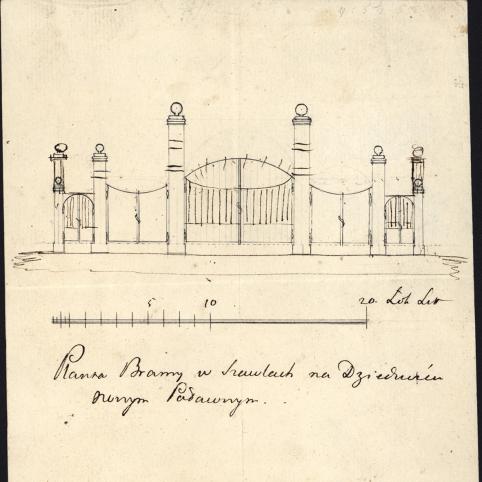 5 10 20 Łok Lit
Plansa Bramy w Szawlach na Dziedzińcu
nowym Palacowym.